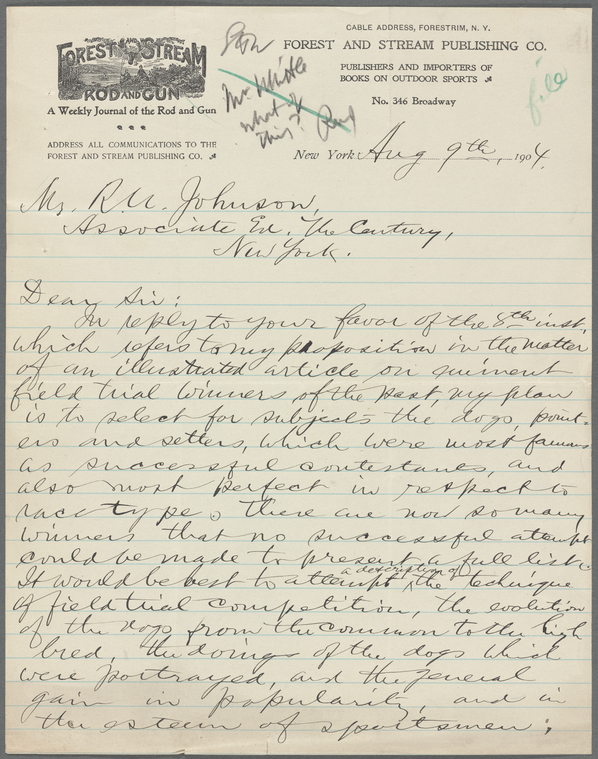 CABLE ADDRESS, FORESTRIM, N. Y.
FOREST AND STREAM PUBLISHING CO.
PUBLISHERS AND IMPORTERS OF
BOOKS ON OUTDOOR SPORTS
No. 346 Broadway
FOREST AND STREAM
ROD AND GUN
A Weekly Journal of the Rod and Gun
ADDRESS ALL COMMUNICATIONS TO THE
FOREST AND STREAM PUBLISHING CO.
what of
this?
file
New York Aug 9th, 1904.
Mr. R. U. Johnson,
Associate Ed. The Century,
New York.
Dear Sir:
In reply to your favor of the 8th inst,
which refers to my proposition in the matter
of an illustrated article on eminent
field trial winners of the past, my plan
is to select for subjects the dogs, point-
ers and setters, which were most famous
as successful contestants, and
also most perfect in respect to
race type. There are now so many
winners that no successful attempt
could be made to present a full list.
It would be best to attempt a description of the technique
of field trial competition, the evolution
of the dogs from the common to the high
bred, the doings of the dogs which
were portrayed, and the general
gain in popularity, and in
the esteem of sportsmen;